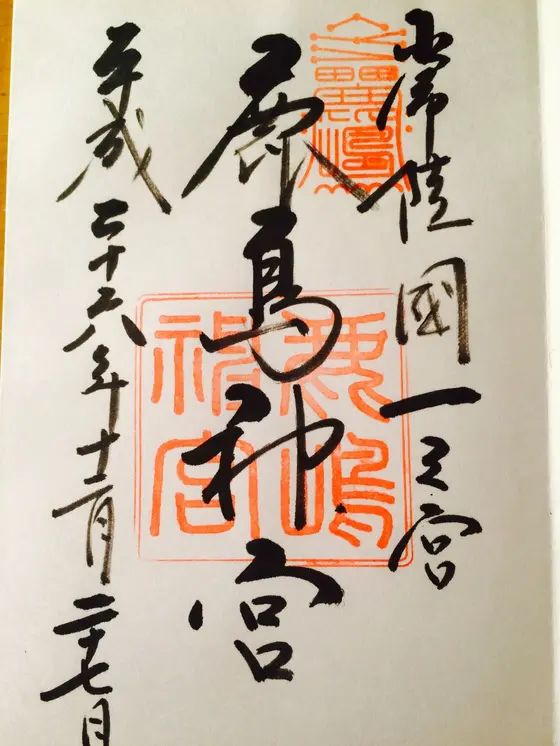 常陸國一之宮
鹿島神宮
平成二十六年十二月二十七日
鹿嶋
神宮